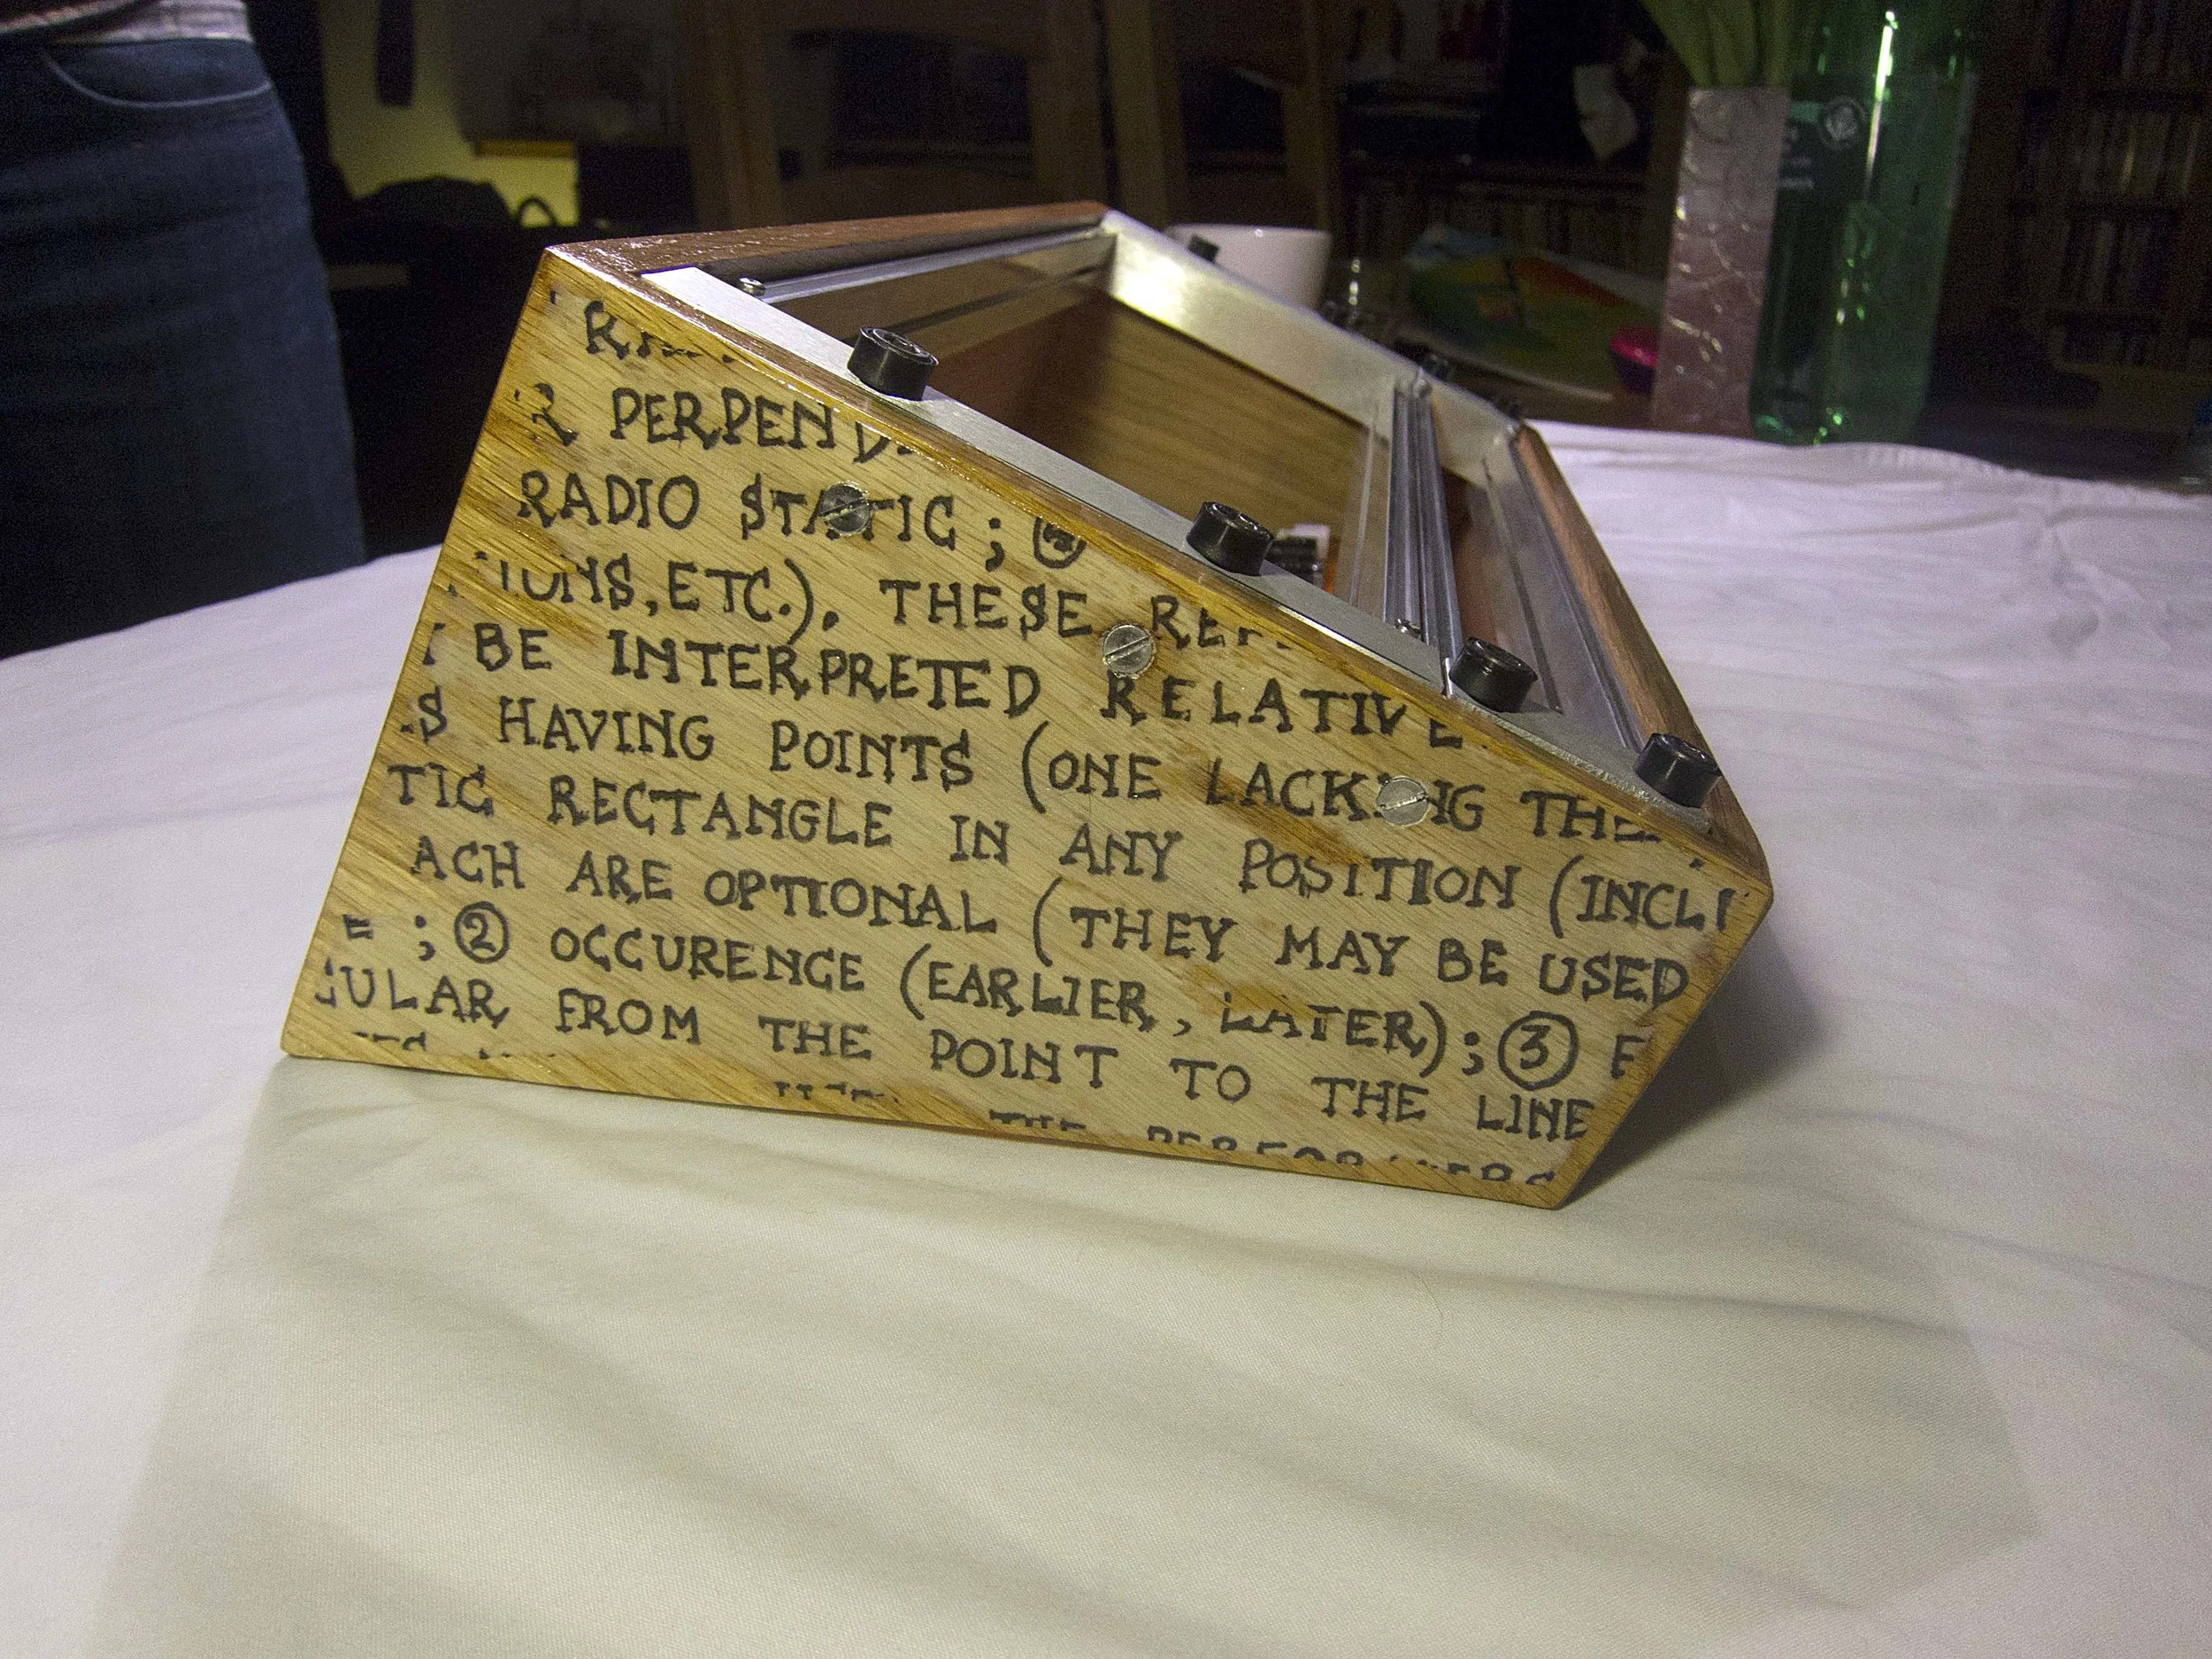 PERPEND
RADIO STATIC ;
ETC.). THESE
BE INTERPRETED RELATIVE
HAVING POINTS (ONE LACKING THE
TIC RECTANGLE IN ANY POSITION (INCL
ACH ARE OPTIONAL (THEY MAY BE USED
; ② OCCURENCE (EARLIER, LATER); ③ E
ULAR FROM THE POINT TO THE LINE
THE PERFORMERS